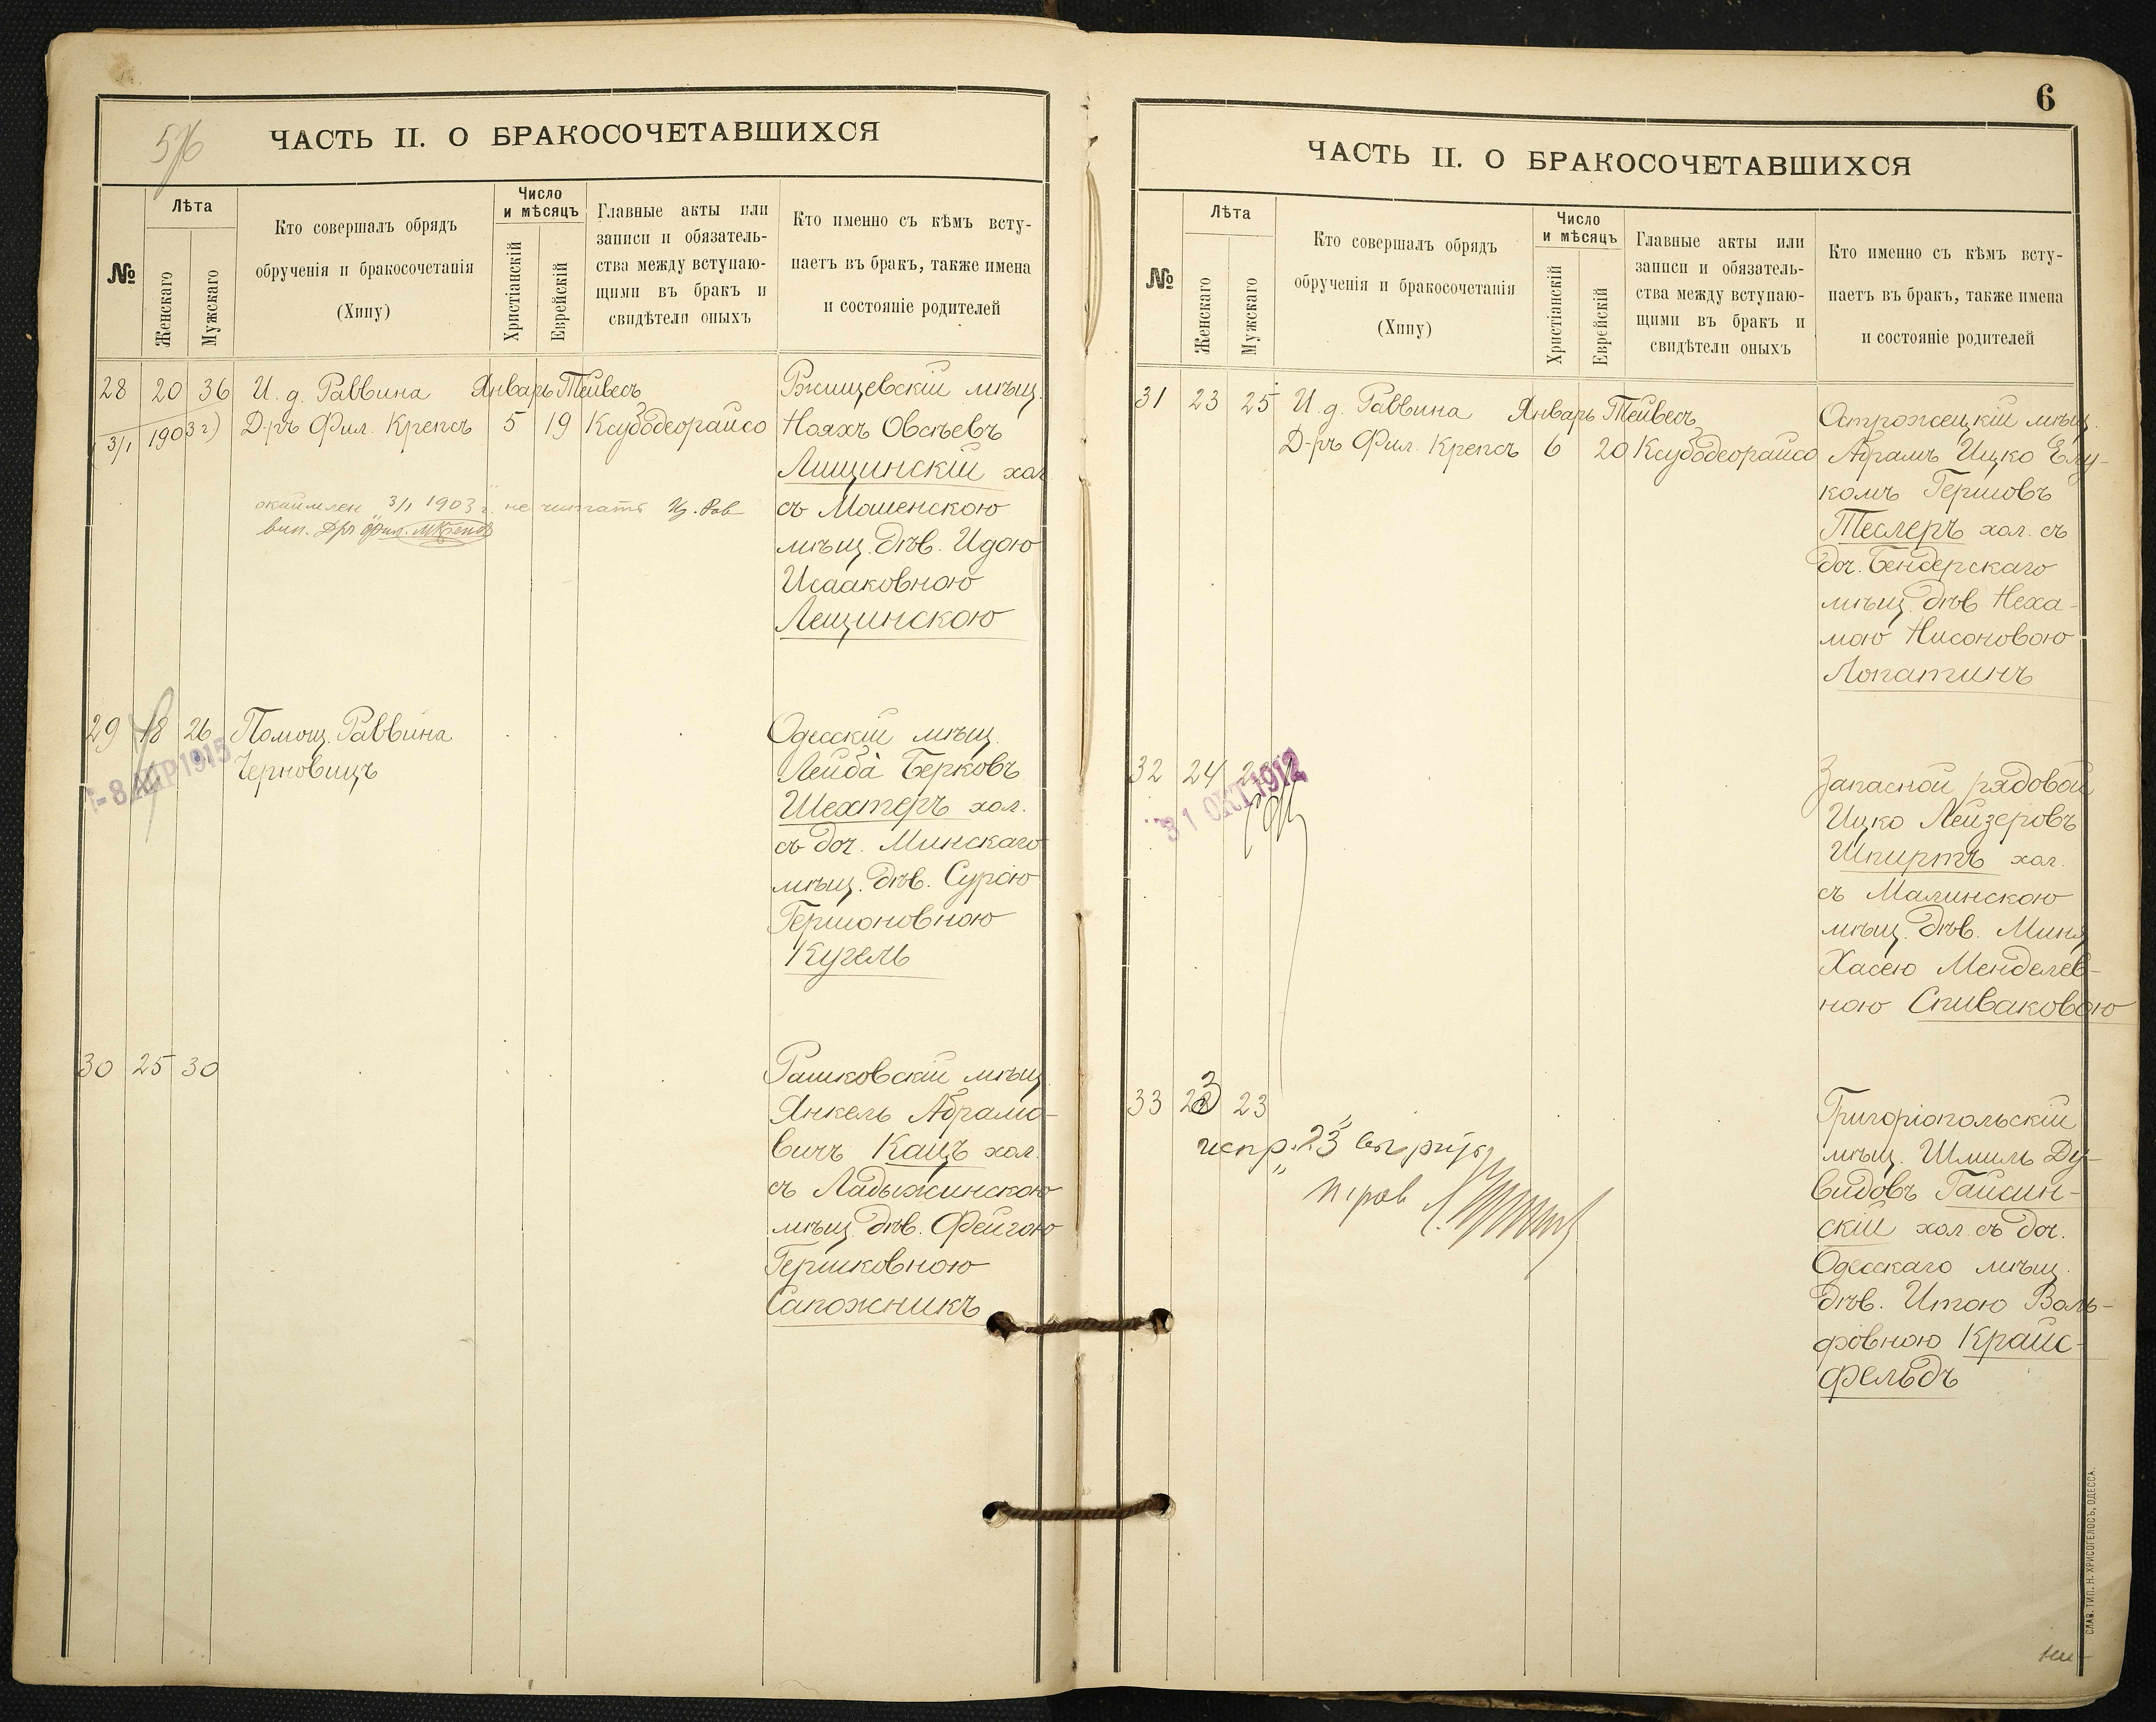 5/6
ЧАСТЬ II. О БРАКОСОЧЕТАВШИХСЯ
№
Лѣта
Женскаго
Мужскаго
Кто совершалъ обрядъ
обрученія и бракосочетанія
(Хипу)
Число
и мѣсяцъ
Христіанскій
Еврейскій
Главные акты или
записи и обязатель-
ства между вступаю-
щими въ бракъ и
свидѣтели оныхъ
Кто именно съ кѣмъ всту-
паетъ въ бракъ, также имена
и состояніе родителей
28 20 36 И. д. Раввина Январь Тейвесъ
(3/1 1903 г) Д-ръ Фил. Крепсъ 5 19 Ксубодеорайсо
Ржищевскій мѣщ.
Нояхъ Овсѣевъ
Лищинскій хол.
съ Мошенскою
мѣщ. дѣв. Идою
Исааковною
Лещинскою
3/1 1903 г. не читать
29 18 26 Помощ. Раввина
Черновицъ
-8 АПР 1915
Одесскій мѣщ.
Лейба Берковъ
Шехтеръ хол.
съ доч. Минскаго
мѣщ. дѣв. Сурою
Гершоновною
Кугель
30 25 30
Рашковскій мѣщ.
Янкель Абрамо-
вичъ Кацъ хол.
съ Ладыжинскою
мѣщ. дѣв. Фейгою
Гершковною
Сапожникъ
6
ЧАСТЬ II. О БРАКОСОЧЕТАВШИХСЯ
№
Лѣта
Женскаго
Мужскаго
Кто совершалъ обрядъ
обрученія и бракосочетанія
(Хипу)
Число
и мѣсяцъ
Христіанскій
Еврейскій
Главные акты или
записи и обязатель-
ства между вступаю-
щими въ бракъ и
свидѣтели оныхъ
Кто именно съ кѣмъ всту-
паетъ въ бракъ, также имена
и состояніе родителей
31 23 25 И. д. Раввина Январь Тейвесъ
Д-ръ Фил. Крепсъ 6 20 Ксубодеорайсо
Острожецкій мѣщ.
Абрамъ Ицко Елу-
комъ Гершовъ
Теслеръ хол. съ
доч. Бендерскаго
мѣщ. дѣв. Неха-
мою Нисоновою
Лопатинъ
32 24
31 ОКТ 1912
Запасной рядовой
Ицко Лейзеровъ
Шпиртъ хол.
съ Малинскою
мѣщ. дѣв. Миня
Хасею Менделев-
ною Спиваковою
33 23 23
испр. 23
Григоріопольскій
мѣщ. Шмиль Ду-
видовъ Гайсин-
скій хол. съ доч.
Одесскаго мѣщ.
дѣв. Итою Воль-
фовною Крайс-
фельдъ
СЛАВ. ТИП. Н. ХРИСОГЕЛОСЪ, ОДЕССА.